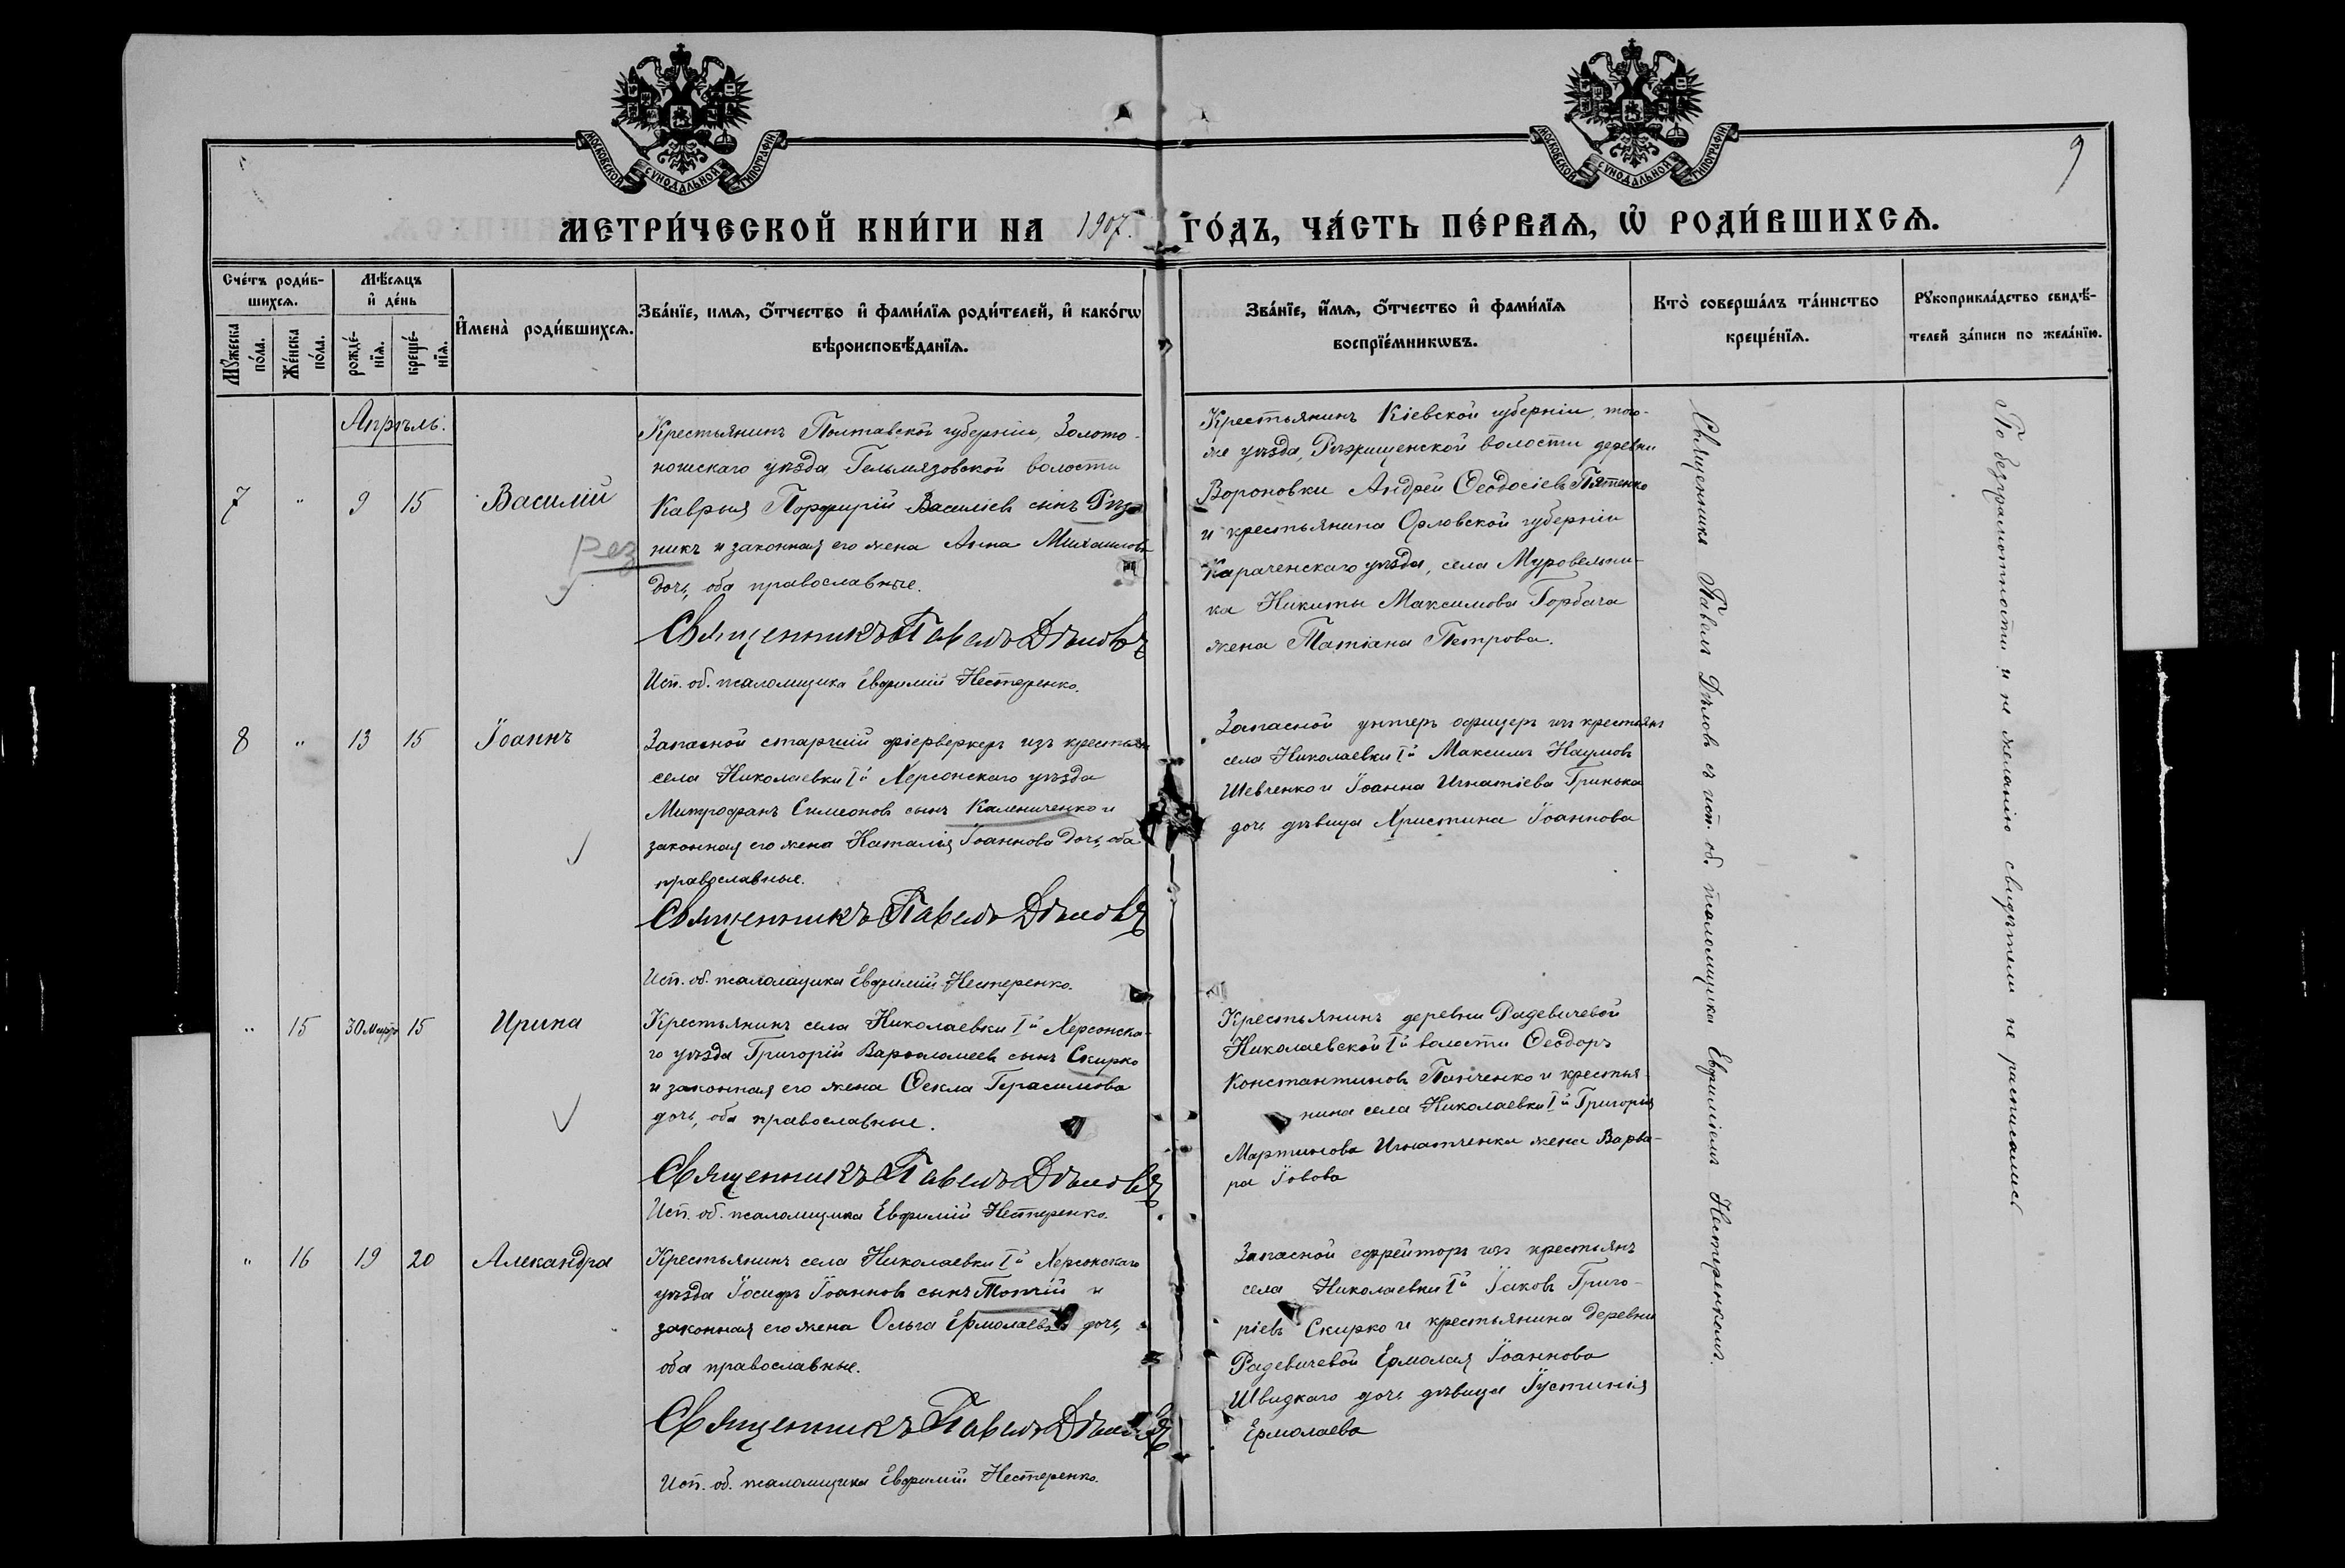 МОСКОВСКОЙ СѴНОДАЛЬНОЙ ТИПОГРАФІИ
МОСКОВСКОЙ СѴНОДАЛЬНОЙ ТИПОГРАФІИ
9
МЕТРИ́ЧЕСКОЙ КНИ́ГИ НА 1907. ГО́ДЪ, ЧА́СТЬ ПЕ́РВАѦ, Ѽ РОДИ́ВШИХСѦ.
Сче́тъ роди́в-
шихсѧ.
Мꙋ́жеска по́ла.
Же́нска по́ла.
Мѣ́сѧцъ
и҆ де́нь
рожде́-
нїѧ.
креще́-
нїѧ.
И҆мена̀ роди́вшихсѧ.
Зва́нїе, имѧ, ѻ҆́тчество и҆ фами́лїѧ роди́телей, и҆ како́гѡ
вѣроисповѣ́данїѧ.
Зва́нїе, и҆́мѧ, ѻ҆́тчество и҆ фами́лїѧ
воспрїе́мникѡвъ.
Кто̀ соверша́лъ та́инство
креще́нїѧ.
Рꙋкоприкла́дство свидѣ́-
телей за́писи по жела́нїю.
Апрѣль.
7 " 9 15 Василій
Крестьянинъ Полтавской губерніи, Золото-
ношскаго уѣзда Гельмязовской волости
Каврыя Порфирій Василіевъ сынъ Рѣз
никъ и законная его жена Анна Михаилова
дочь, оба православные.
Рез
Священникъ Павелъ Дѣловъ
Исп. об. псаломщика Евфимій Нестеренко.
Крестьянинъ Кіевской губерніи, того-
же уѣзда, Ржищенской волости деревни
Вороновки Андрей Ѳеодосіевъ Пятенко
и крестьянина Орловской губерніи
Караченскаго уѣзда, села Муровельни-
ка Никиты Максимова Горбача
жена Татіана Петрова.
8 " 13 15 Іоаннъ
Запасной старшій фіерверкеръ изъ крестьянъ
села Николаевки Iй Херсонскаго уѣзда
Митрофанъ Симеоновъ сынъ Калениченко и
законная его жена Наталія Іоаннова дочь, оба
православные.
Священникъ Павелъ Дѣловъ
Исп. об. псаломщика Евфимій Нестеренко.
Запасной унтеръ офицеръ изъ крестьянъ
села Николаевки Iй Максимъ Наумовъ
Шевченко и Іоанна Игнатіева Гринька
дочь дѣвица Христина Іоаннова
" 15 30 Марта 15 Ирина
Крестьянинъ села Николаевки Iй Херсонска-
го уѣзда Григорій Варѳоломеевъ сынъ Скирко
и законная его жена Ѳекла Герасимова
дочь, оба православные.
Священникъ Павелъ Дѣловъ
Исп. об. псаломщика Евфимій Нестеренко.
Крестьянинъ деревни Радевичевой
Николаевской Iй волости Ѳеодоръ
Константиновъ Панченко и крестья-
нина села Николаевки Iй Григорія
Мартинова Игнатченка жена Варва-
ра Іовова
" 16 19 20 Алекандра
Крестьянинъ села Николаевки Iй Херсонскаго
уѣзда Іосифъ Іоанновъ сынъ Топчій и
законная его жена Ольга Ермолаева дочь,
оба православные.
Священникъ Павелъ Дѣловъ
Исп. об. псаломщика Евфимій Нестеренко.
Запасной ефрейторъ изъ крестьянъ
села Николаевки Iй Іаковъ Григо-
ріевъ Скирко и крестьянина деревни
Радевичевой Ермолая Іоаннова
Швидкаго дочь дѣвица Іустинія
Ермолаева
Священникъ Павелъ Дѣловъ съ исп. об. псаломщика Евфиміемъ Нестеренкомъ.
По безграмотности и не желанію свидѣтели не расписались